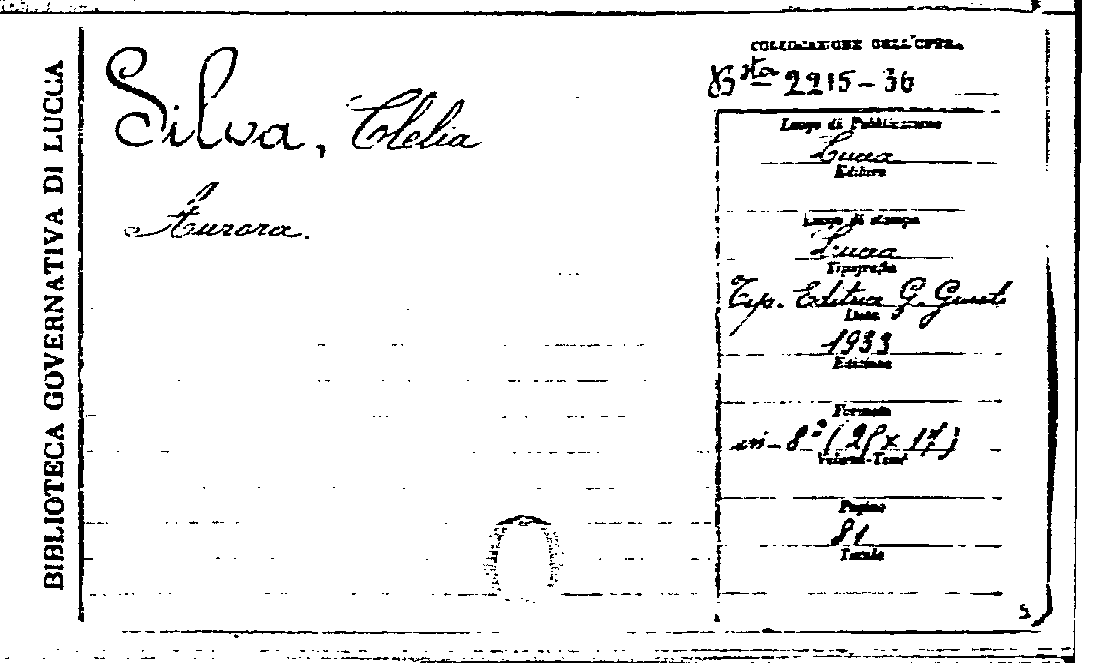 BIBLIOTECA GOVERNATIVA DI LUCCA
Silva, Clelia
Aurora.
COLLOCAZIONE DELL'OPERA
Bsta 2215-36
Luogo di Pubblicazione
Lucca
Editore
Luogo di stampa
Lucca
Tipografia
Tip. Editrice G. Giusti
Data
1933
Edizione
Formato
in-8° (25 x 17)
Volumi-Tomi
Pagine
81
Tavole
5